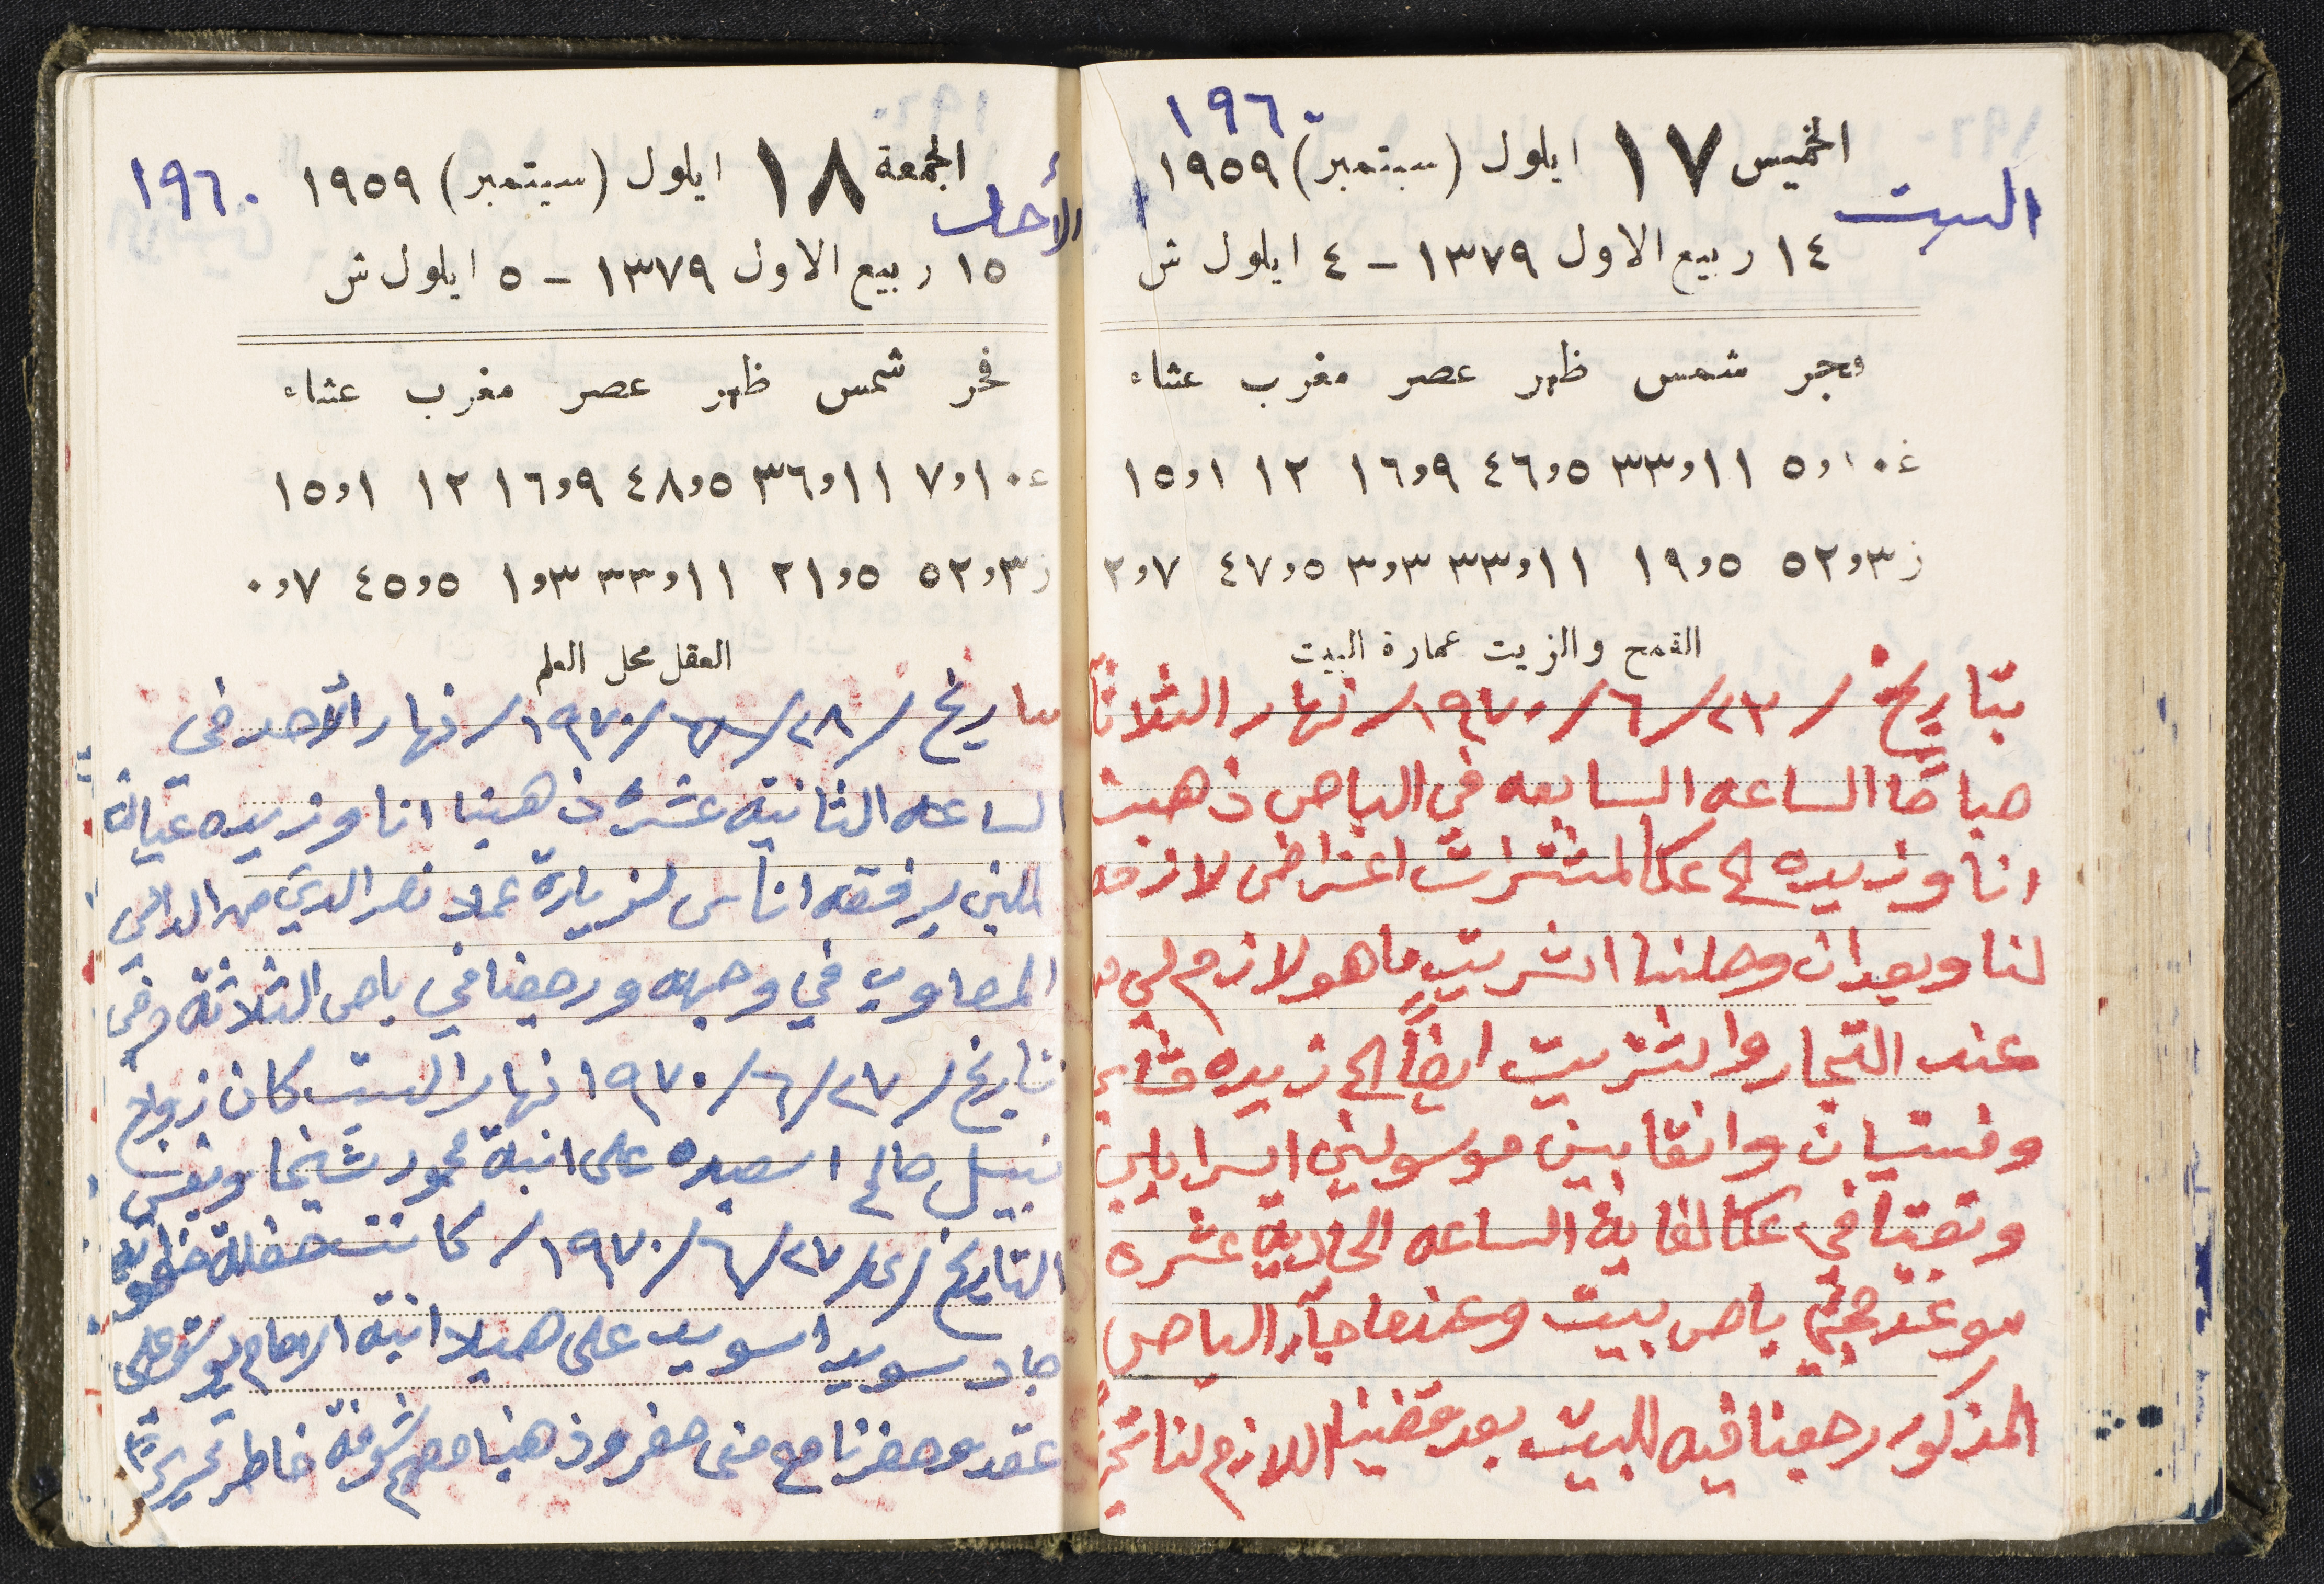 ١٩٦٠
الخميس ١٧ ايلول (سبتمبر) ١٩٥٩
السبت
١٤ ربيع الاول ١٣٧٩ - ٤ ايلول ش
فجر شمس ظهر عصر مغرب عشاء
غ ١٠و٥ ١١و٣٣ ٥و٤٦ ٩و١٦ ١٢ ١و١٥
ز ٣و٥٢ ٥و١٩ ١١و٣٣ ٣و٣ ٥و٤٧ ٧و٢
القمح والزيت عمارة البيت
بتاريخ /٢٣/٦/١٩٧٠/ نهار الثلاثا
صباحًا الساعه السابعه في الباص ذهبت
انا وزيده الى عكا لمشترات اغراض لازمه
لنا وبعد ان وصلنا اشريت ما هو لازم لي من
عند التجار واشتريت ايضًا الى زيده
وفستان وانقابين موسولين ايسرايلي
وبقينا في عكا لغاية الساعه الحادية عشره
موعد باص بيت وعندما جآر الباص
المذكور رجعنا فيه للبيت بعد قضينا اللازم لنا
الجمعة ١٨ ايلول (سبتمبر) ١٩٥٩ ١٩٦٠
الأحد
١٥ ربيع الاول ١٣٧٩ - ٥ ايلول ش
فجر شمس ظهر عصر مغرب عشاء
غ ١٠و٧ ١١و٣٦ ٥و٤٨ ٩و١٦ ١٢ ١و١٥
ز ٣و٥٢ ٥و٢١ ١١و٣٣ ٣و١ ٥و٤٥ ٧و٠
العقل محل العلم
بتاريخ /٢٨/٦/١٩٧٠/ نهار الأحد في
الساعه الثانيه عشره ذهبنا انا وزيده
برفقه اناس لزيارة نصر الدين
في وجهه ورجعنا في باص الثلاثة وفي
تاريخ /٢٧/٦/١٩٧٠ نهار السبت كان زواج
نبيل صالح اسعيده على ابنة محمود شيخا ونفس
التاريخ /٢٧/٦/١٩٧٠/ كانت حفلة خطوبة
جاد سويد اسويد على هميلا ابنة
عقد وحضرنا مع منى صفر وذهبنا معهم خاطر